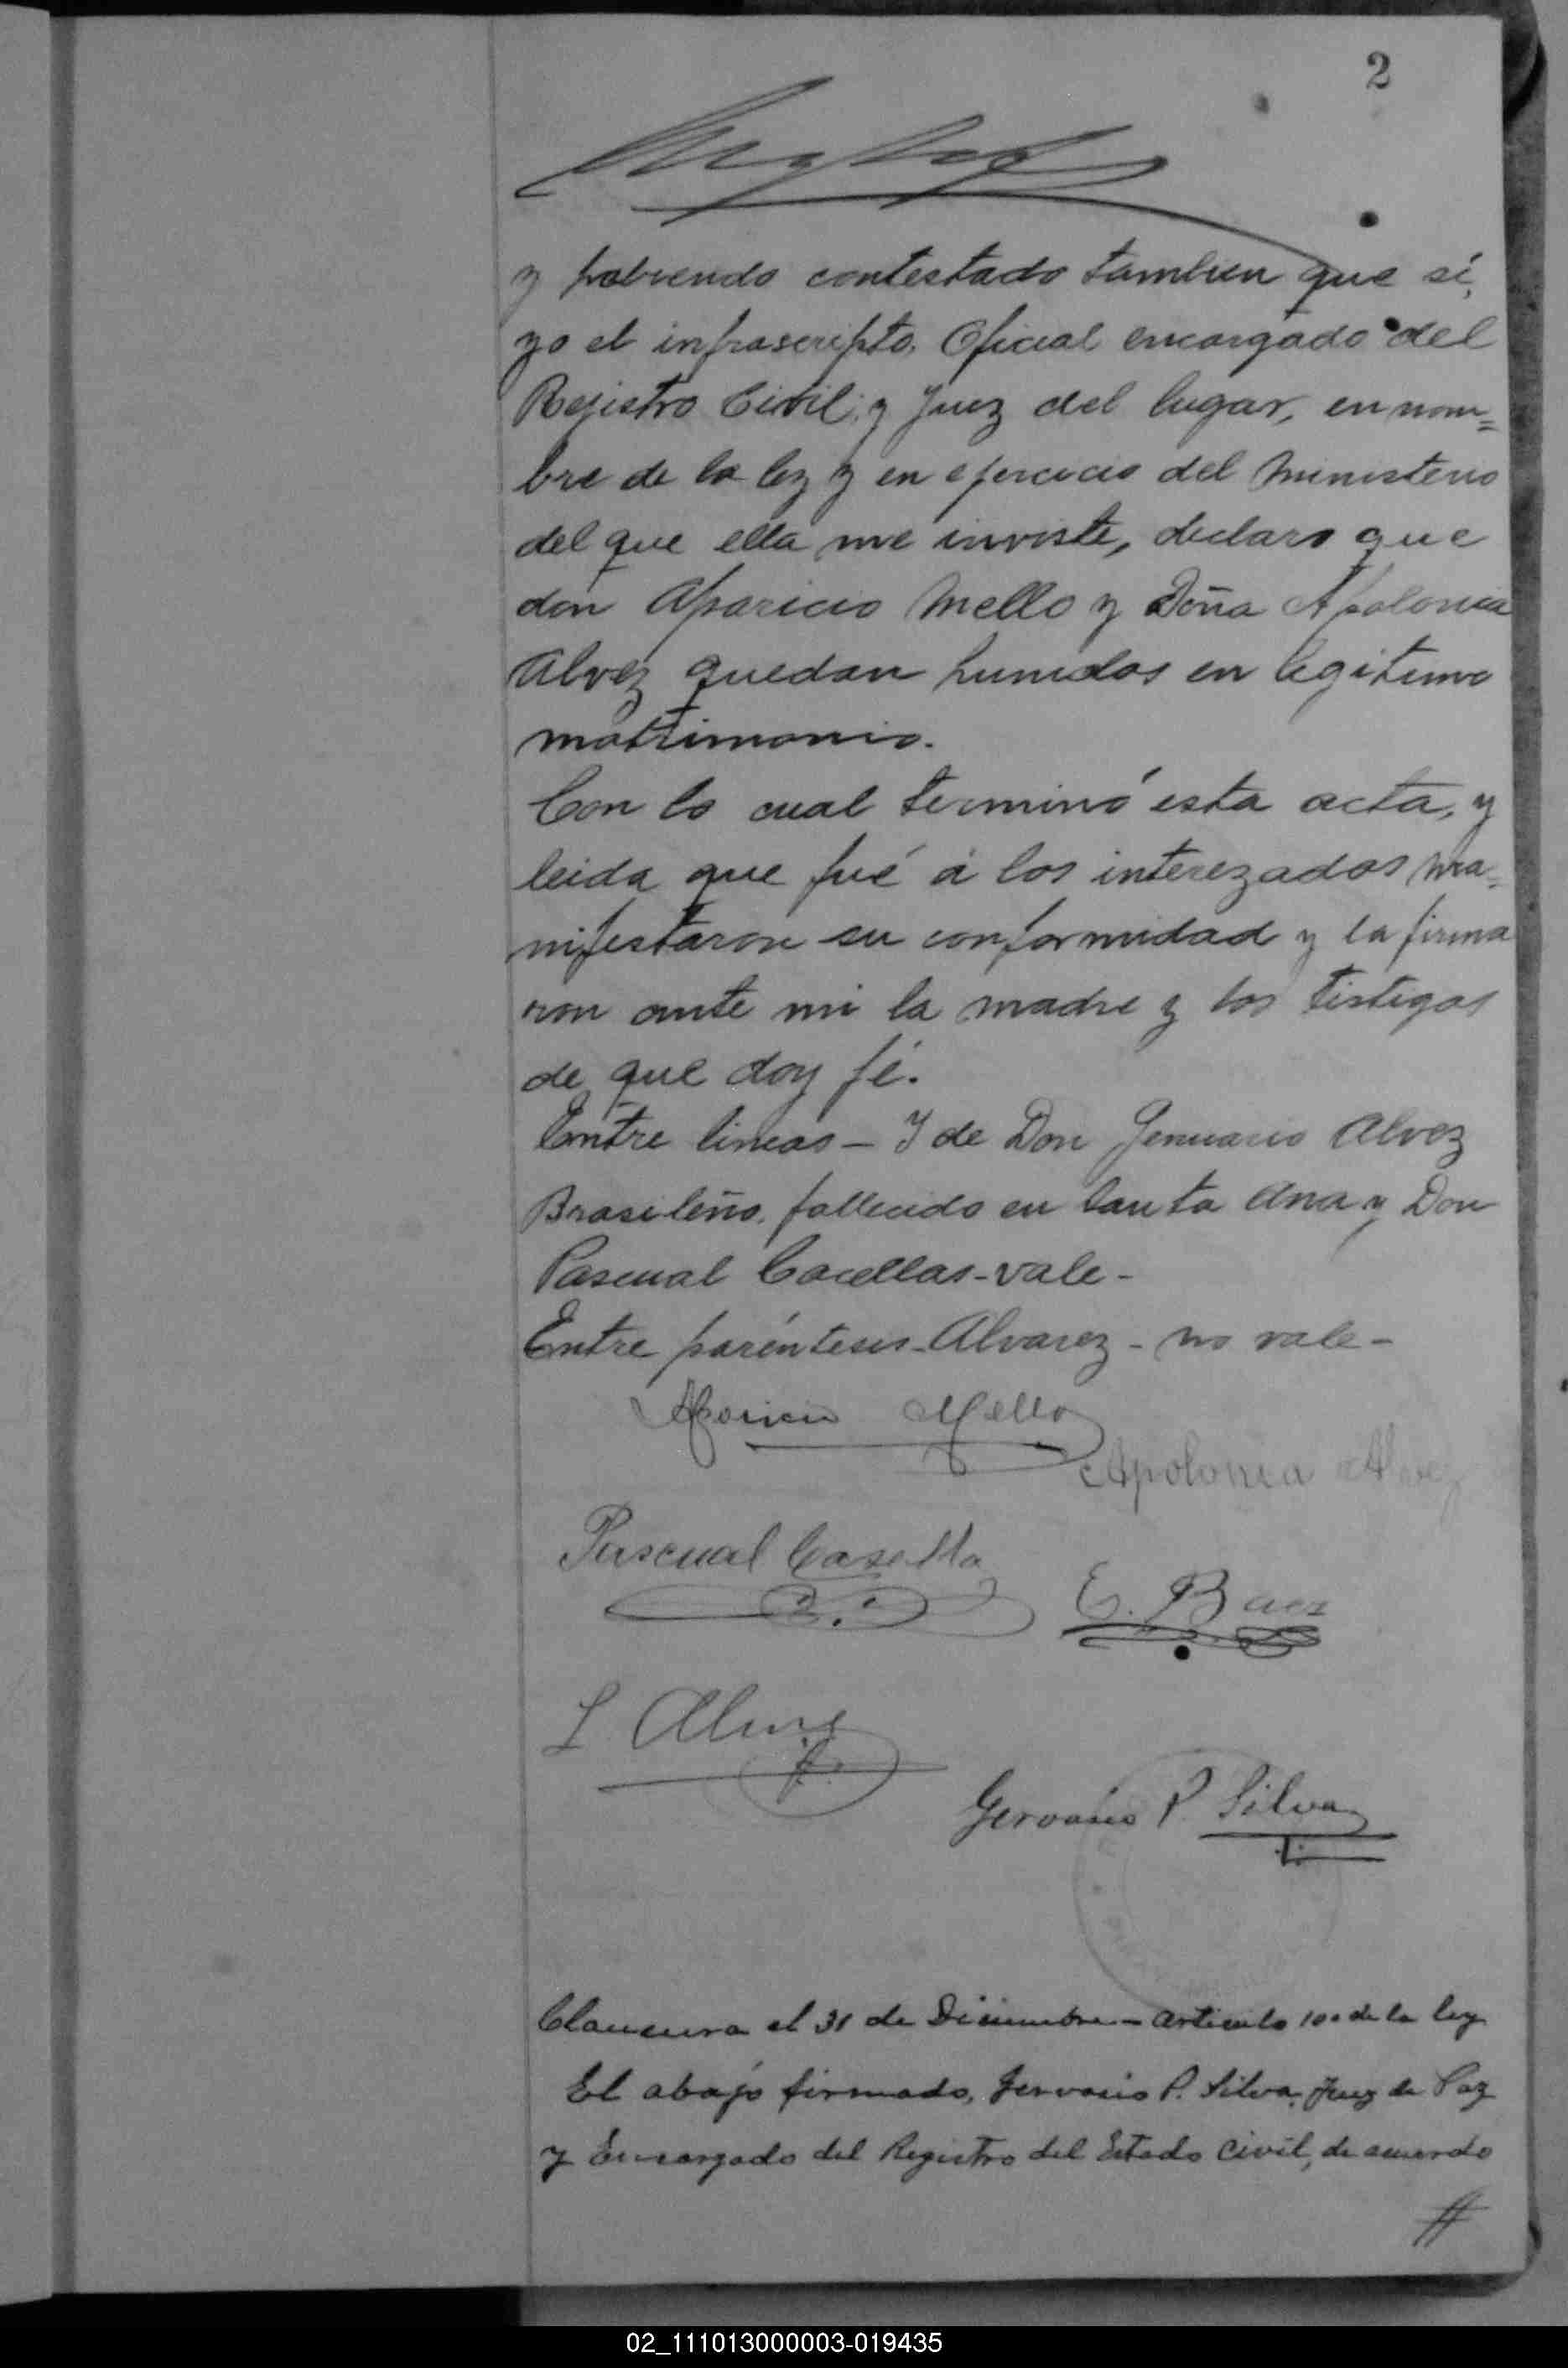 2
y habiendo contestado tambien que sí,
yo el infrascripto, Oficial encargado del
Registro Civil y Juez del lugar, en nom=
bre de la ley y en ejercicio del Ministerio
del que ella me inviste, declaro que
don Aparicio Mello y Doña Apolonia
Alvez quedan hunidos en legitimo
matrimonio.
Con lo cual terminó esta acta, y
leida que fué á los interezados ma=
nifestaron su conformidad y la firma
ron ante mi la madre y los testigos
de que doy fé.
Entre lineas – Y de Don Genuario Alvez
Brasileño, fallecido en Santa Ana y Don
Pascual Cacellas - vale -
Entre paréntesis - Alvarez - no vale -
Aparicio Mello
Apolonia Alvez
Pascual Casella
E. Baez
L
Gervasio P. Silva
Clausura el 31 de Diciembre – Articulo 10 de la ley
El abajo firmado, Gervasio P. Silva, Juez de Paz
y Encargado del Registro del Estado Civil, de acuerdo
//
02_111013000003-019435